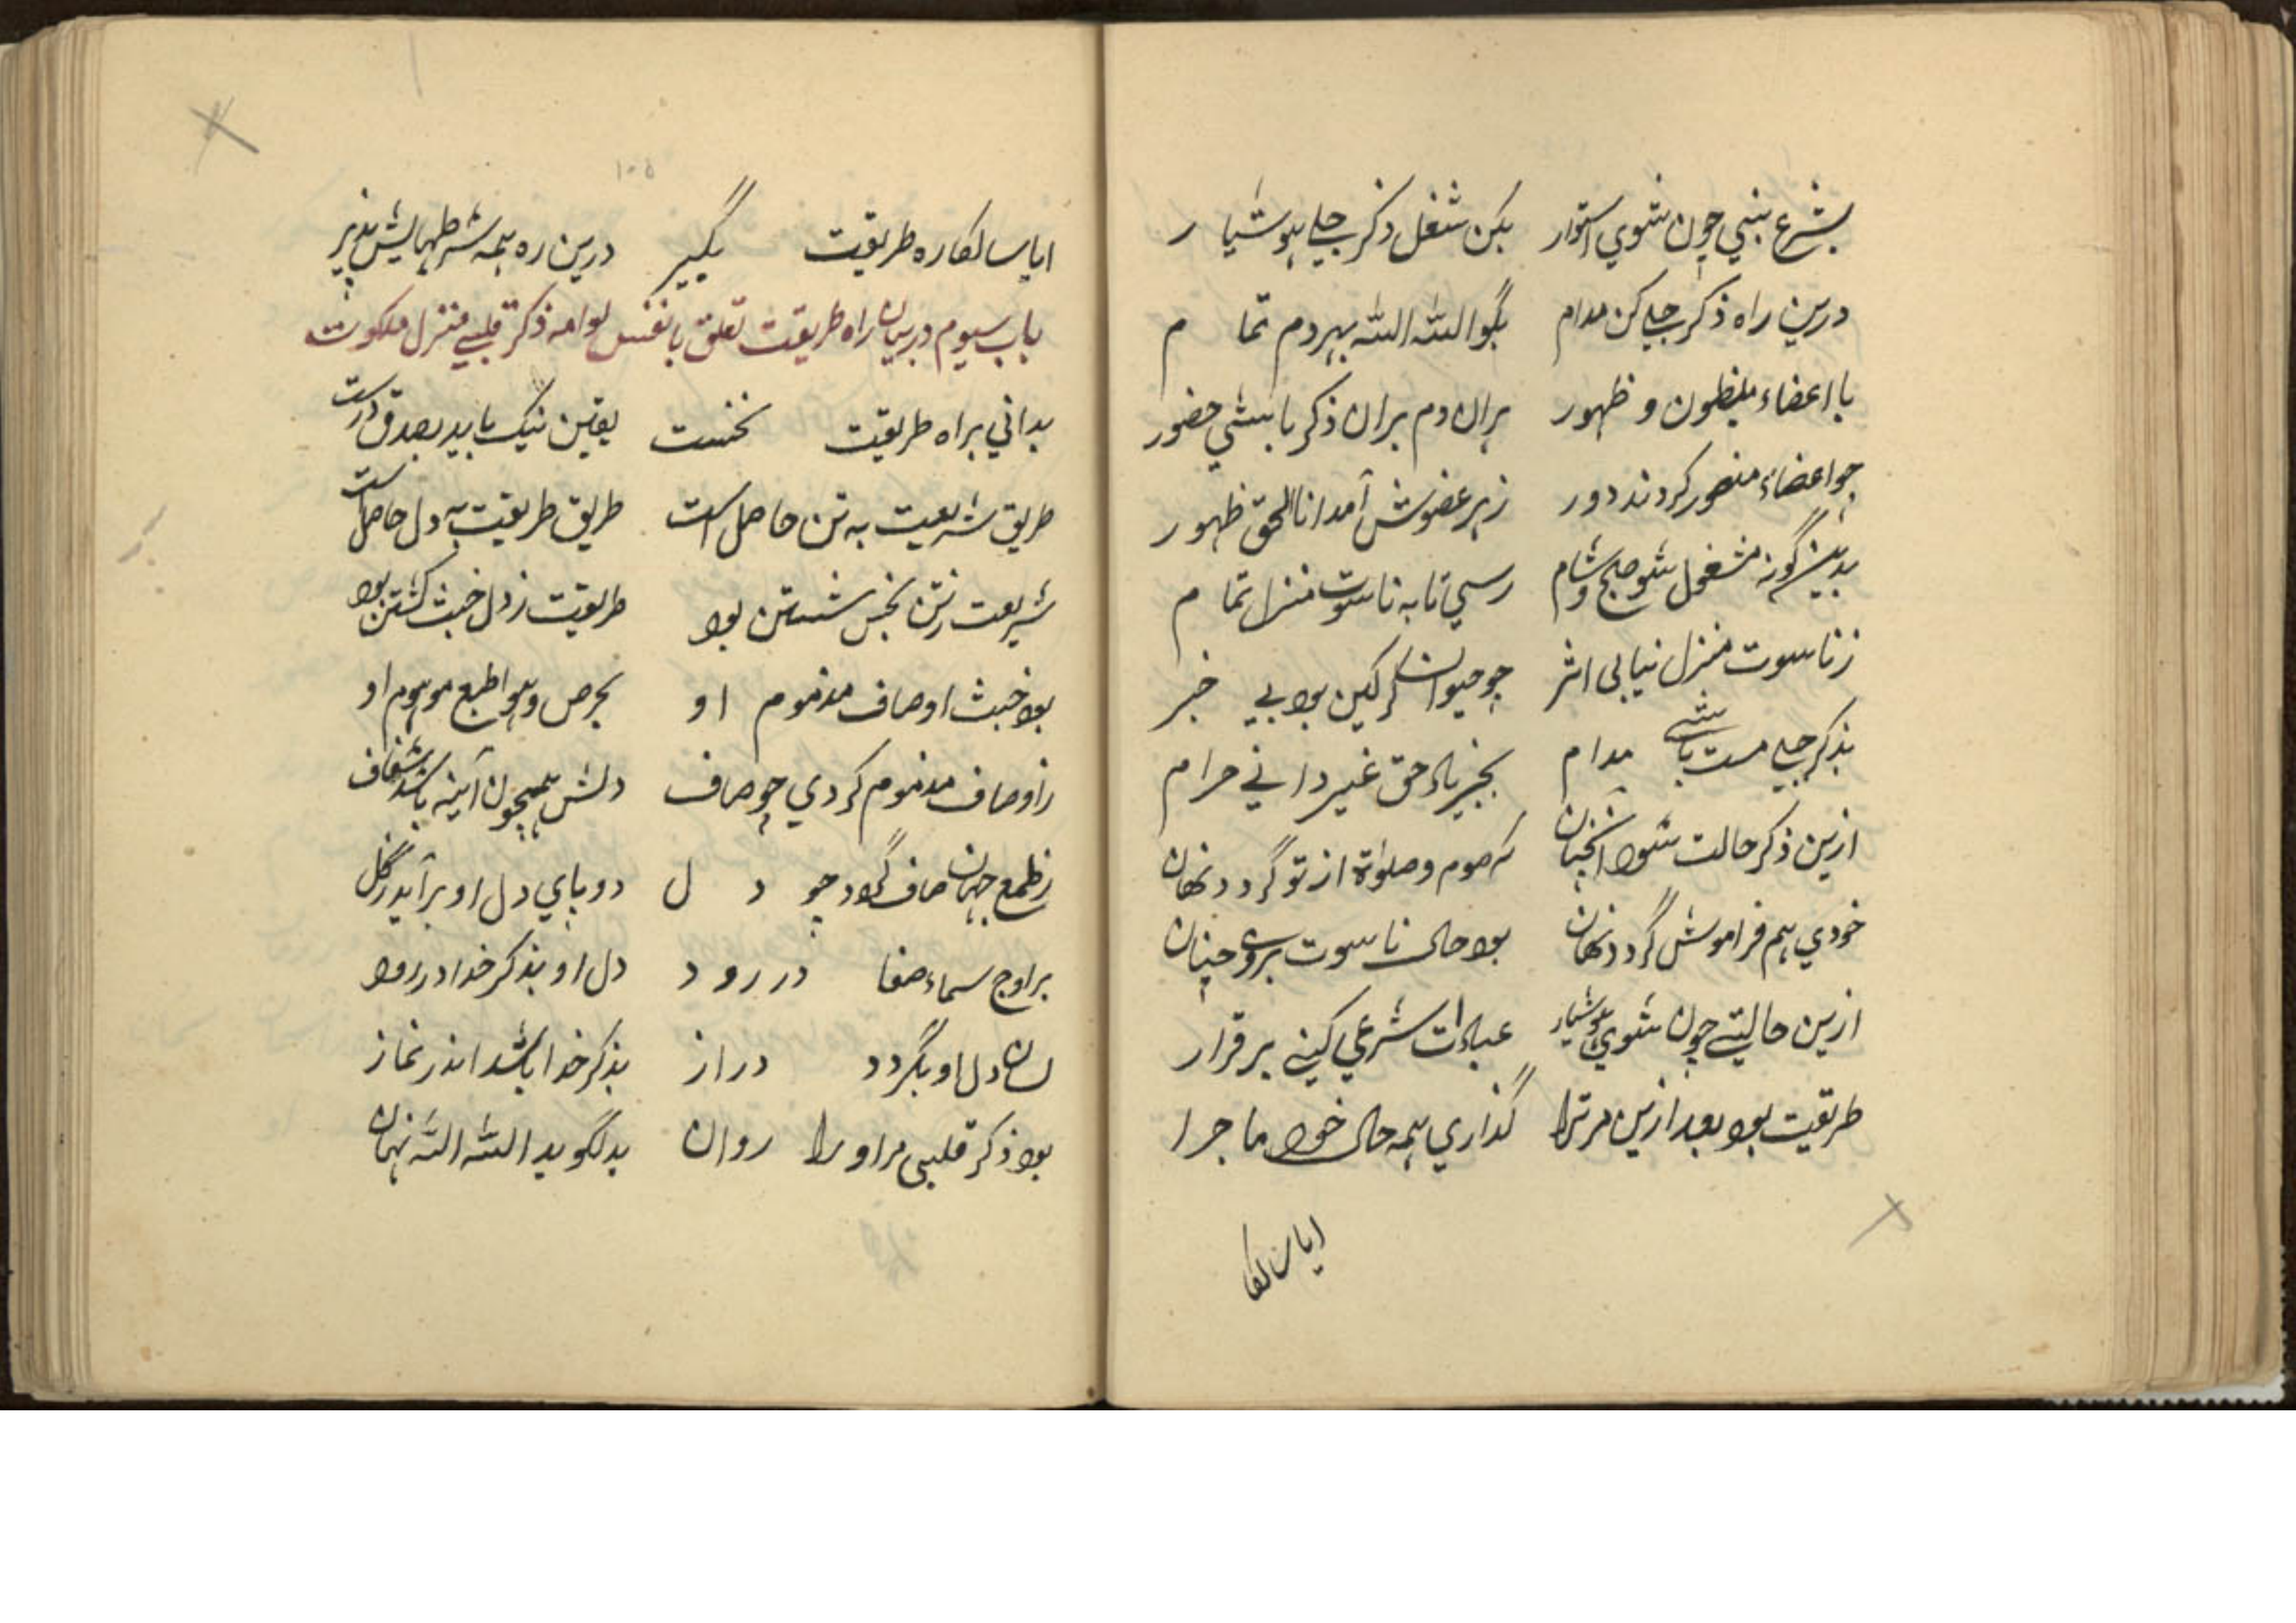 بشرع نبی چون شوی استوار بکن شغل ذکر جلی هوشیار
درین راه ذکر جلی کن مدام بگو الله الله بهردم تمام
با اعضاء ظهور بران دم بران ذکر باشی حضور
چو اعضاء منصور کردند دور زهر عضوش آمد انا الحق ظهور
بدینگونه مشغول شو صبح و شام رسی تا به ناسوت منزل تمام
زناسوت منزل نیابی اثر چو حیوان بود بی خبر
بذکر جلی مست باشی مدام بجز یاد حق غیر دانی حرام
ازین ذکر حالت شود آنچنان که صوم و صلوٰة از تو گردد نهان
خودی هم فراموش گردد نهان بود حال ناسوت بروی چنان
ازین حالتی چون شوی هوشیار عبادات شرعی کنی برقرار
طریقت بود بعد ازین مر ترا گذاری همه حال خود ماجرا
ایا سالکا
۱۰۵
ایا سالکا ره طریقت بگیر درین ره همه شرطهایش پذیر
باب سیوم در بیان راه طریقت تعلق با نفس لوامه ذکر قلبی منزل ملکوت
بدانی براه طریقت نخست یقین نیک باید بصدق درست
طریق شریعت به تن حاصل است طریق طریقت به دل حاصل است
شریعت زتن نجس شستن بود طریقت زدل خبث کشتن بود
بود خبث اوصاف مذموم او بحرص و هوا طمع موهوم او
زاوصاف مذموم کردی چو صاف دلش همچون آینه باشد شفاف
زطمع جهان صاف گردد چو دل دو پای دل او برآید زگل
بر اوج سماء صفا در رود دل او بذکر خدا در رود
لسان دل او بگردد دراز بذکر خدا باشد اندر نماز
بود ذکر قلبی مر او را روان بدل گوید الله الله نهان